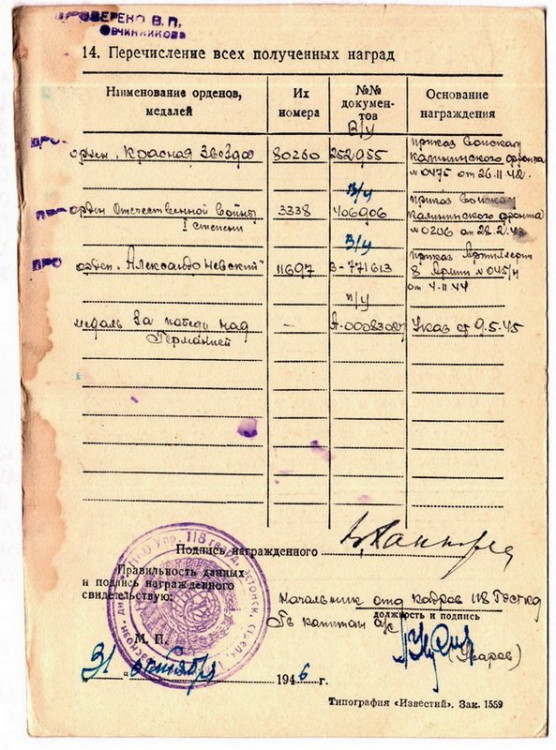 ПРОВЕРЕНО В.П.
ОВЧИННИКОВА
14. Перечисление всех полученных наград
Наименование орденов, медалей
Их номера
№№ докумен-тов
Основание награждения
В/у
орден „Красная Звезда"
80260
252955
приказ войскам
калининского фронта
№0475 от 26.11.42.
В/у
орден Отечественной Войны
I степени
3338
406906
приказ войскам
калининского фронта
№0206 от 28.2.43
В/у
орден „Александр Невский"
11697
В-771613
приказ Артиллерии
8 Армии №045/н
от 4.11.44
п/у
медаль За победу над
Германией
–
Указ от 9.5.45
Подпись награжденного
Правильность данных
и подпись награжденного
свидетельствую:
Начальник отд кадров 118
Гв капитан а/с
должность и подпись
(Уваров)
М. П.
31 октября 1946 г.
Типография «Известий». Зак. 1559